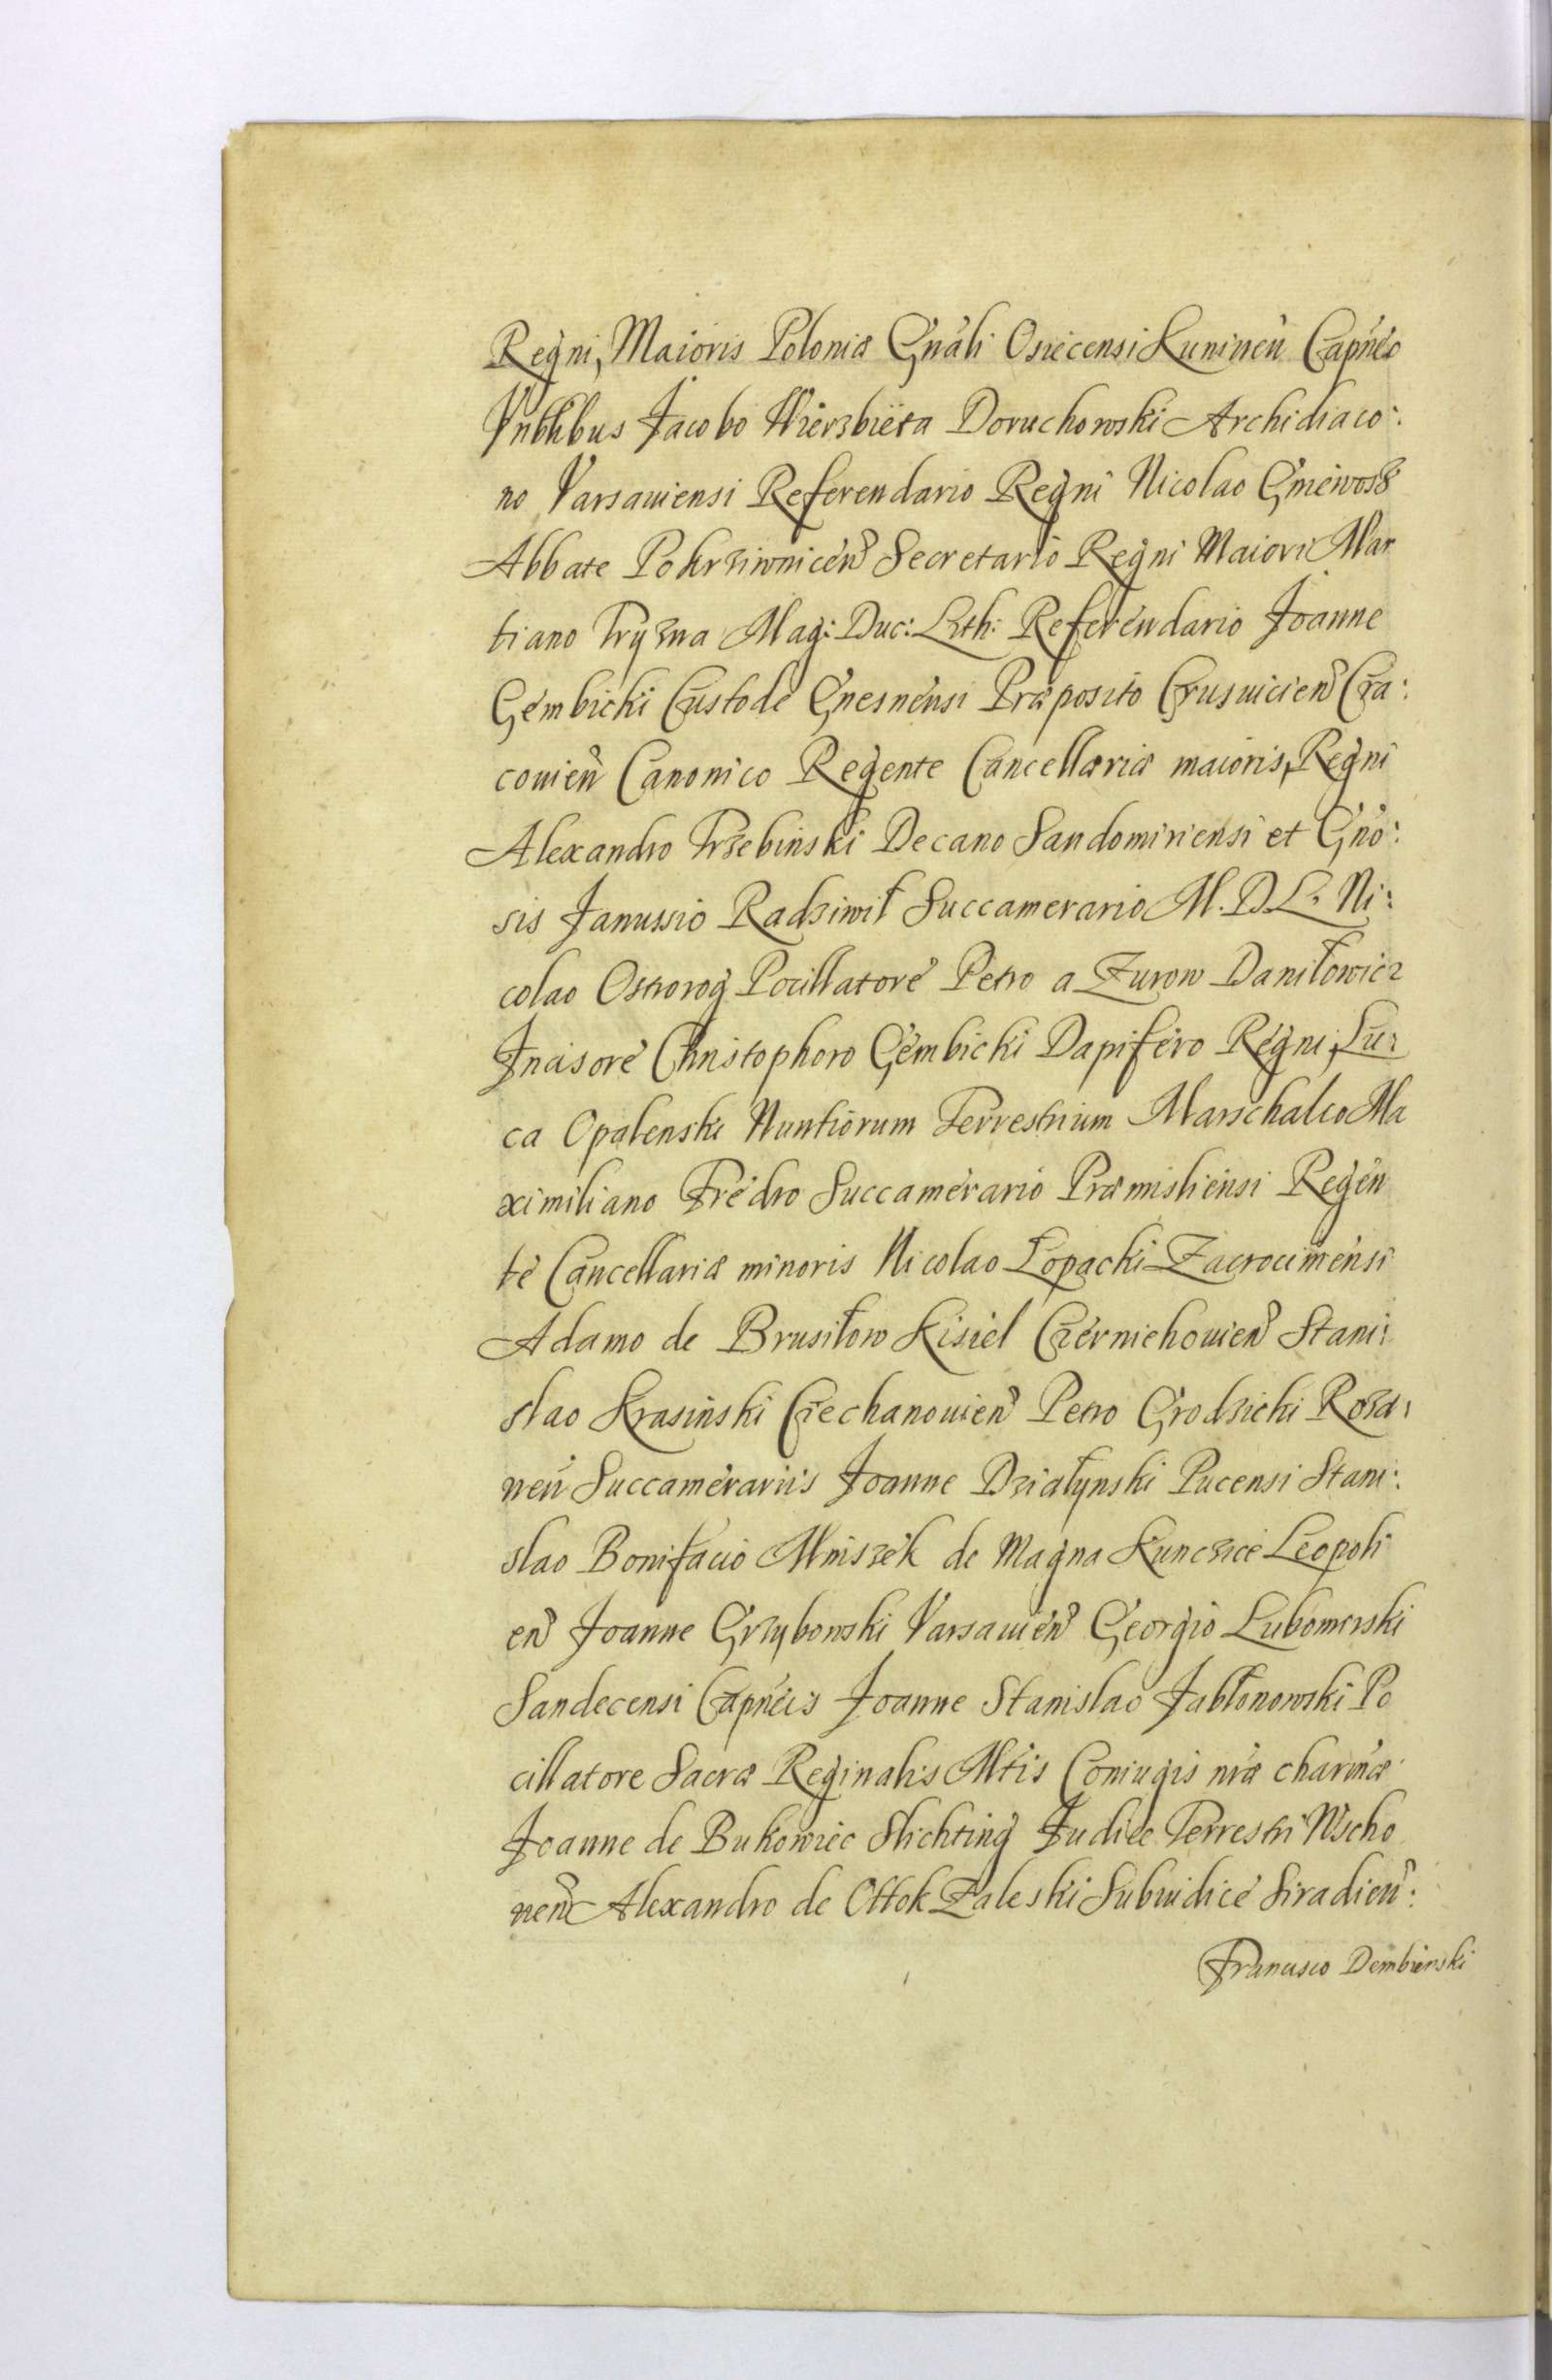 Regni, Maioris Poloniæ Gnáli Osiecensi Kuninen̄ Capnéo
Vnblibus Jacobo Wierzbięta Doruchowski Archidiaco:
no Varsauiensi Referendario Regni Nicolao Gniewosz
Abbate Pokrziwnicen̄ Secretario Regni Maiori Mar
tiano Tryzna Mag: Duc: Lith: Referendario Joanne
Gembicki Custode Gnesnensi Præposito Crusuicien̄ Cra:
couien̄ Canonico Regente Cancellariæ maioris Regni
Alexandro Trzebinski Decano Sandomiriensi et Gnō:
sis Janussio Radziwił Succamerario M. D. L. Ni:
colao Ostrorog Pocillatore Petro a Zurow Daniłowicz
Incisore Christophoro Gembicki Dapifero Regni, Lu:
ca Opalenski Nuntiorum Terrestrium Marschalco Ma
ximiliano Fredro Succamerario Præmisliensi Regen
te Cancellariæ minoris Nicolao Łopacki Zacrocimensi
Adamo de Brusiłow Kisiel Czerniehouien̄ Stani:
slao Krasinski Ciechanouien̄ Petro Grodzicki Roza:
nen̄ Succamerariis Joanne Działynski Pucensi Stani:
slao Bonifacio Mniszek de Magna Kunczice Leopoli
en̄ Joanne Grzybowski Varsauien̄ Georgio Lubomirski
Sandecensi Capnéis Joanne Stanislao Jabłonowski Po
cillatore Sacræ Reginalis Mtis Coniugis nræ charmæ
Joanne de Bukowiec Slichting Judice Terrestri Wscho
nen̄ Alexandro de Ottok Zaleski Subiudice Siradien̄:
Francisco Dembinski